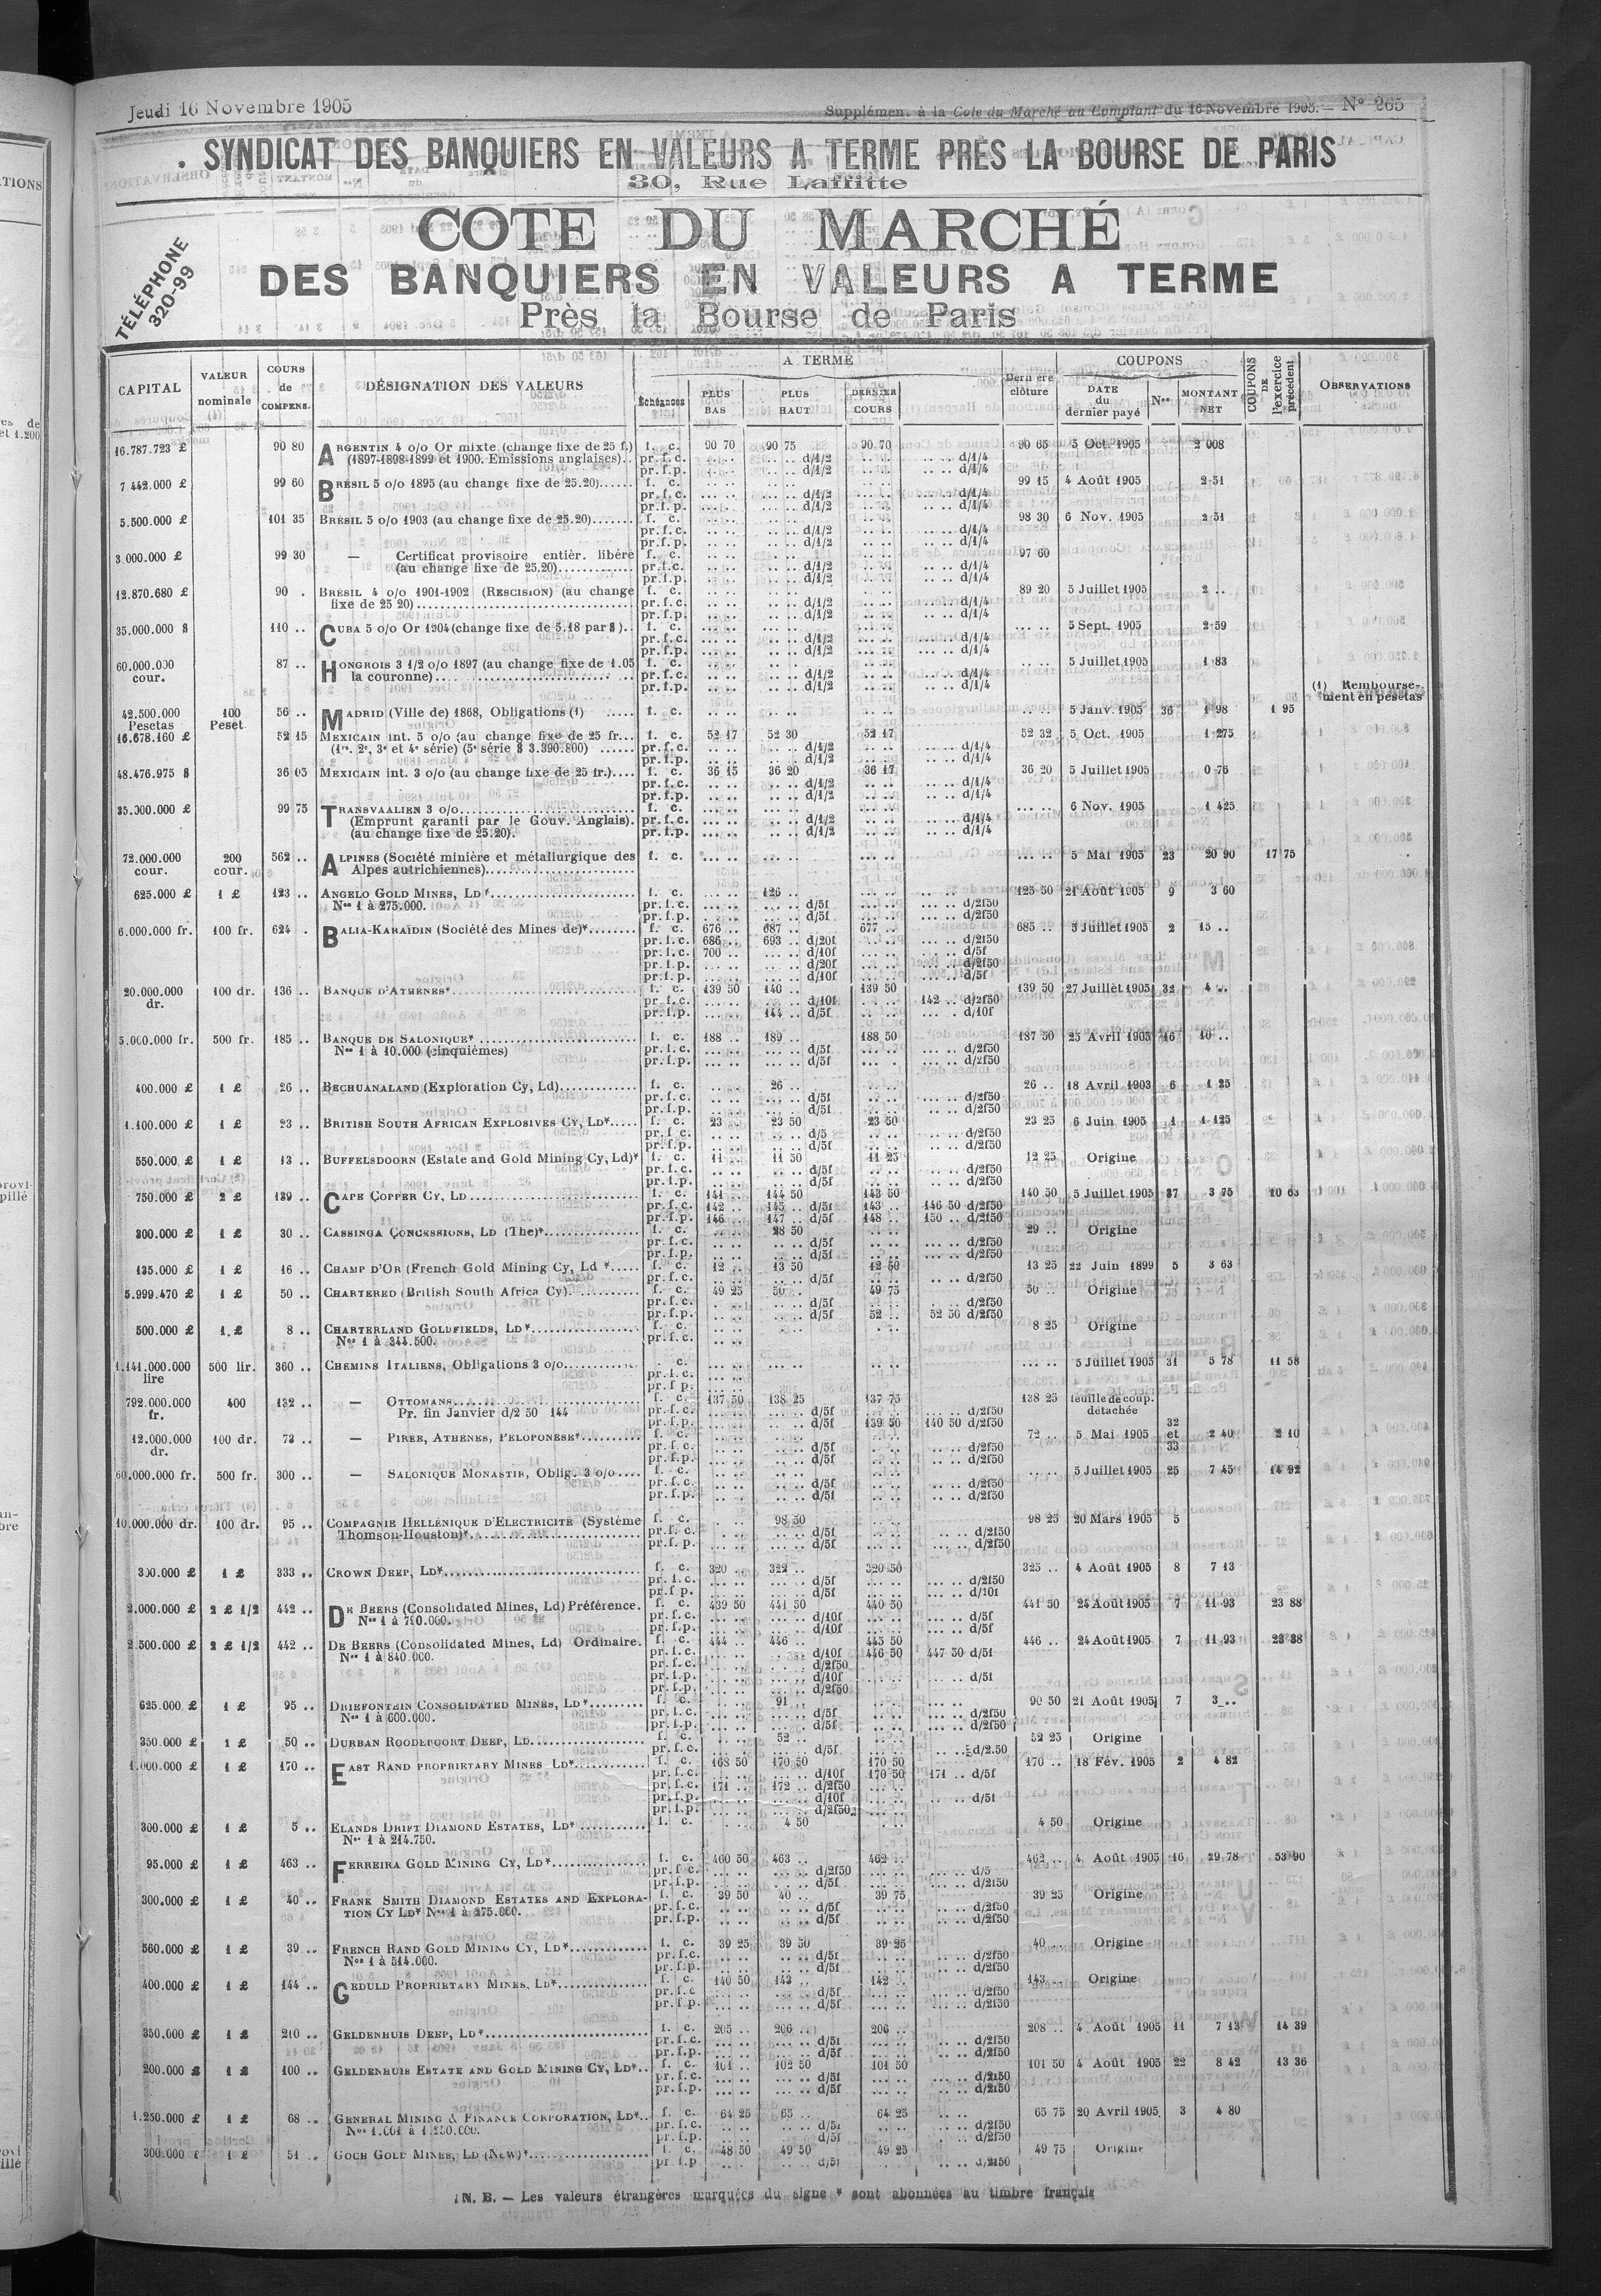 Jeudi 16 Novembre 1905
Supplément à la Cote du Marché au Comptant du 16 Novembre 1905. — N° 265
SYNDICAT DES BANQUIERS EN VALEURS A TERME PRÈS LA BOURSE DE PARIS
30, Rue Laffitte
TÉLÉPHONE
320-99
COTE DU MARCHÉ
DES BANQUIERS EN VALEURS A TERME
Près la Bourse de Paris
CAPITAL | VALEUR nominale | COURS de COMPENS. | DÉSIGNATION DES VALEURS | A TERME | Échéances | PLUS BAS | PLUS HAUT | DERNIER COURS | Dernière clôture | COUPONS | DATE du dernier payé | Nos | MONTANT NET | COUPONS DE l'exercice précédent | OBSERVATIONS
16.787.723 £ 90 80 ARGENTIN 4 o/o Or mixte (change fixe de 25 f.) f. c. 90 70 90 75 90 70 90 65 5 Oct. 1905 2 008
(1897-1898-1899 et 1900. Emissions anglaises).. pr. f. c. d/1/2 d/1/4
pr. f. p. d/1/2 d/1/4
7 442.000 £ 99 60 BRÉSIL 5 o/o 1895 (au change fixe de 25.20) f. c. 99 15 4 Août 1905 2 51
pr. f. c. d/1/2 d/1/4
pr. f. p. d/1/2 d/1/4
5.500.000 £ 101 35 BRÉSIL 5 o/o 1903 (au change fixe de 25.20) f. c. 98 30 6 Nov. 1905 2 51
pr. f. c. d/1/2 d/1/4
pr. f. p. d/1/2 d/1/4
3.000.000 £ 99 30 — Certificat provisoire entièr. libéré f. c. 97 60
(au change fixe de 25.20) pr. f. c. d/1/2 d/1/4
pr. f. p. d/1/2 d/1/4
12.870.680 £ 90 . BRÉSIL 4 o/o 1901-1902 (RESCISION) (au change f. c. 89 20 5 Juillet 1905 2 ..
fixe de 25 20) pr. f. c. d/1/2 d/1/4
pr. f. p. d/1/2 d/1/4
35.000.000 $ 110 .. CUBA 5 o/o Or 1904 (change fixe de 5.18 par $).. f. c. 5 Sept. 1905 2 59
pr. f. c. d/1/2 d/1/4
pr. f. p. d/1/2 d/1/4
60.000.000 cour. 87 .. HONGROIS 3 1/2 o/o 1897 (au change fixe de 1.05 f. c. 5 Juillet 1905 1 83
la couronne) pr. f. c. d/1/2 d/1/4
pr. f. p. d/1/2 d/1/4
(1) Rembourse-
ment en pesetas
42.500.000 Pesetas 100 Peset. 56 .. MADRID (Ville de) 1868, Obligations (1) f. c. 5 Janv. 1905 36 1 98 1 95
16.678.160 £ 52 15 MEXICAIN int. 5 o/o (au change fixe de 25 fr... f. c. 52 17 52 30 52 17 52 32 5 Oct. 1905 1 275
(1re. 2e, 3e et 4e série) (5e série $ 3.390.800) pr. f. c. d/1/2 d/1/4
pr. f. p. d/1/2 d/1/4
48.476.975 $ 36 05 MEXICAIN int. 3 o/o (au change fixe de 25 fr.) f. c. 36 15 36 20 36 17 36 20 5 Juillet 1905 0 76
pr. f. c. d/1/2 d/1/4
pr. f. p. d/1/2 d/1/4
35.000.000 £ 99 75 TRANSVAALIEN 3 o/o f. c. 6 Nov. 1905 1 425
(Emprunt garanti par le Gouv. Anglais). pr. f. c. d/1/2 d/1/4
(au change fixe de 25.20). pr. f. p. d/1/2 d/1/4
72.000.000 cour. 200 cour. 562 .. ALPINES (Société minière et métallurgique des f. c. 5 Mai 1905 23 20 90 17 75
Alpes autrichiennes)
625.000 £ 1 £ 123 .. ANGELO GOLD MINES, LD* f. c. 126 125 50 21 Août 1905 9 3 60
Nos 1 à 275.000. pr. f. c. d/5f d/2f50
pr. f. p. d/5f d/2f50
6.000.000 fr. 100 fr. 624 . BALIA-KARAÏDIN (Société des Mines de)* f. c. 676 .. 687 .. 677 .. 685 .. 5 Juillet 1905 2 15 ..
pr. f. c. 686 .. 693 .. d/20f d/2f50
pr. f. c. 700 .. d/10f d/5f
pr. f. p. d/20f d/2f50
pr. f. p. d/10f d/5f
20.000.000 dr. 100 dr. 136 .. BANQUE D'ATHÈNES* f. c. 139 50 140 .. 139 50 139 50 27 Juillet 1905 32 4 ..
pr. f. c. d/10f 142 .. d/2f50
pr. f. p. 144 .. d/5f d/10f
5.000.000 fr. 500 fr. 185 .. BANQUE DE SALONIQUE* f. c. 188 .. 189 .. 188 50 187 50 25 Avril 1905 16 10 ..
Nos 1 à 10.000 (cinquièmes) pr. f. c. d/5f d/2f50
pr. f. p. d/5f d/2f50
400.000 £ 1 £ 26 .. BECHUANALAND (Exploration Cy, Ld) f. c. 26 .. 26 .. 18 Avril 1903 6 1 25
pr. f. c. d/5f d/2f50
pr. f. p. d/5f d/2f50
1.100.000 £ 1 £ 23 .. BRITISH SOUTH AFRICAN EXPLOSIVES CY, LD* f. c. 23 .. 23 50 23 50 23 25 6 Juin 1905 1 1 125
pr. f. c. d/5 d/2f50
pr. f. p. d/5f d/2f50
550.000 £ 1 £ 13 .. BUFFELSDOORN (Estate and Gold Mining Cy, Ld)* f. c. 11 .. 11 50 11 25 12 25 Origine
pr. f. c. d/5f d/2f50
pr. f. p. d/5f d/2f50
750.000 £ 2 £ 139 .. CAPE COPPER CY, LD f. c. 141 .. 144 50 143 50 140 50 5 Juillet 1905 37 3 75 10 63
pr. f. c. 142 .. 145 .. d/5f 143 .. 146 50 d/2f50
pr. f. p. 146 .. 147 .. d/5f 148 .. 150 .. d/2f50
300.000 £ 1 £ 30 .. CASSINGA CONCESSIONS, LD (The)* f. c. 28 50 29 .. Origine
pr. f. c. d/5f d/2f50
pr. f. p. d/5f d/2f50
135.000 £ 1 £ 16 .. CHAMP D'OR (French Gold Mining Cy, Ld * f. c. 12 .. 13 50 12 50 13 25 22 Juin 1899 5 3 63
pr. f. c. d/5f d/2f50
5.999.470 £ 1 £ 50 .. CHARTERED (British South Africa Cy) f. c. 49 25 50 .. 49 75 50 .. Origine
pr. f. c. d/5f d/2f50
pr. f. p. d/5f 52 .. 52 50 d/2f50
500.000 £ 1 £ 8 .. CHARTERLAND GOLDFIELDS, LD* f. c. 8 25 Origine
Nos 1 à 344.500. pr. f. c.
1.141.000.000 lire 500 lir. 360 .. CHEMINS ITALIENS, Obligations 3 o/o f. c. 5 Juillet 1905 31 5 78 11 58
pr. f. c.
pr. f. p.
792.000.000 fr. 400 132 .. — OTTOMANS f. c. 137 50 138 25 137 75 138 25 feuille de coup. détachée
Pr. fin Janvier d/2 50 144 pr. f. c. d/5f d/2f50
pr. f. p. d/5f 139 50 140 50 d/2f50
12.000.000 dr. 100 dr. 73 .. — PIRÉE, ATHÈNES, PÉLOPONÈSE* f. c. 72 .. 5 Mai 1905 32 et 33 2 40 2 10
pr. f. c. d/5f d/2f50
pr. f. p. d/5f d/2f50
60.000.000 fr. 500 fr. 300 .. — SALONIQUE MONASTIR, Oblig. 3 o/o f. c. 5 Juillet 1905 25 7 45 14 92
pr. f. c. d/5f d/2f50
pr. f. p. d/5f d/2f50
10.000.000 dr. 100 dr. 95 .. COMPAGNIE HELLÉNIQUE D'ELECTRICITÉ (Système f. c. 98 50 98 25 20 Mars 1905 5
Thomson-Houston)* pr. f. c. d/5f d/2f50
pr. f. p. d/5f d/2f50
300.000 £ 1 £ 333 .. CROWN DEEP, LD* f. c. 320 .. 322 .. 320 50 325 .. 4 Août 1905 8 7 13
pr. f. c. d/5f d/2f50
pr. f. p. d/5f d/10f
2.000.000 £ 2 £ 1/2 442 .. DE BEERS (Consolidated Mines, Ld) Préférence. f. c. 439 50 441 50 440 50 441 50 24 Août 1905 7 11 93 23 88
Nos 1 à 790.000. pr. f. c. d/10f d/5f
pr. f. p. d/10f d/5f
2.500.000 £ 2 £ 1/2 442 .. DE BEERS (Consolidated Mines, Ld) Ordinaire. f. c. 444 .. 446 .. 445 50 446 .. 24 Août 1905 7 11 93 23 88
Nos 1 à 840.000. pr. f. c. d/10f 446 50 447 50 d/5f
pr. f. c. d/2f50
pr. f. p. d/10f d/5f
pr. f. p. d/2f50
625.000 £ 1 £ 95 .. DRIEFONTEIN CONSOLIDATED MINES, LD* f. c. 91 .. 90 50 21 Août 1905 7 3 ..
Nos 1 à 600.000. pr. f. c. d/5f d/2f50
pr. f. p. d/5f d/2f50
350.000 £ 1 £ 50 .. DURBAN ROODEPOORT DEEP, LD f. c. 52 .. 52 25 Origine
pr. f. c. d/5f d/2.50
1.000.000 £ 1 £ 170 .. EAST RAND PROPRIETARY MINES LD* f. c. 168 50 170 50 170 50 170 .. 18 Fév. 1905 2 4 82
pr. f. c. d/10f 170 50 171 .. d/5f
pr. f. c. 171 .. 172 .. d/2f50
pr. f. p. d/10f d/5f
pr. f. p. d/2f50
300.000 £ 1 £ 5 .. ELANDS DRIFT DIAMOND ESTATES, LD* f. c. 4 50 4 50 Origine
Nos 1 à 214.750.
95.000 £ 1 £ 463 .. FERREIRA GOLD MINING CY, LD* f. c. 460 50 463 .. 462 .. 462 .. 4 Août 1905 16 29 78 53 90
pr. f. c. d/2f50 d/5
pr. f. p. d/5f d/2f50
300.000 £ 1 £ 40 .. FRANK SMITH DIAMOND ESTATES AND EXPLORA- f. c. 39 50 40 .. 39 75 39 25 Origine
TION CY LD* Nos 1 à 275.000. pr. f. c. d/5f d/2f50
pr. f. p. d/5f d/2f50
560.000 £ 1 £ 39 .. FRENCH RAND GOLD MINING CY, LD* f. c. 39 25 39 50 39 25 40 .. Origine
Nos 1 à 514.000. pr. f. c. d/5f d/2f50
pr. f. p. d/5f d/2f50
400.000 £ 1 £ 144 .. GEDULD PROPRIETARY MINES, LD* f. c. 140 50 143 .. 142 .. 143 .. Origine
pr. f. c d/5f d/2f50
pr. f. p. d/5f d/2f50
350.000 £ 1 £ 210 .. GELDENHUIS DEEP, LD* f. c. 205 .. 206 .. 206 .. 208 .. 4 Août 1905 11 7 13 14 39
pr. f. c. d/5f d/2f50
pr. f. p. d/5f d/2f50
200.000 £ 1 £ 100 .. GELDENHUIS ESTATE AND GOLD MINING CY, LD* f. c. 101 .. 102 50 101 50 101 50 4 Août 1905 22 8 42 13 36
pr. f. c. d/5f d/2f50
pr. f. p. d/5f d/2f50
1.250.000 £ 1 £ 68 .. GENERAL MINING & FINANCE CORPORATION, LD* f. c. 64 25 65 .. 64 25 65 75 20 Avril 1905 3 4 80
Nos 1.001 à 1.250.000. pr. f. c. d/5f d/2f50
pr. f. p. d/5f d/2f50
300.000 £ 1 £ 51 .. GOCH GOLD MINES, LD (New)* f. c. 48 50 49 50 49 25 49 75 Origine
pr f.p d/5f d/2f50
N. B. — Les valeurs étrangères marquées du signe * sont abonnées au timbre français